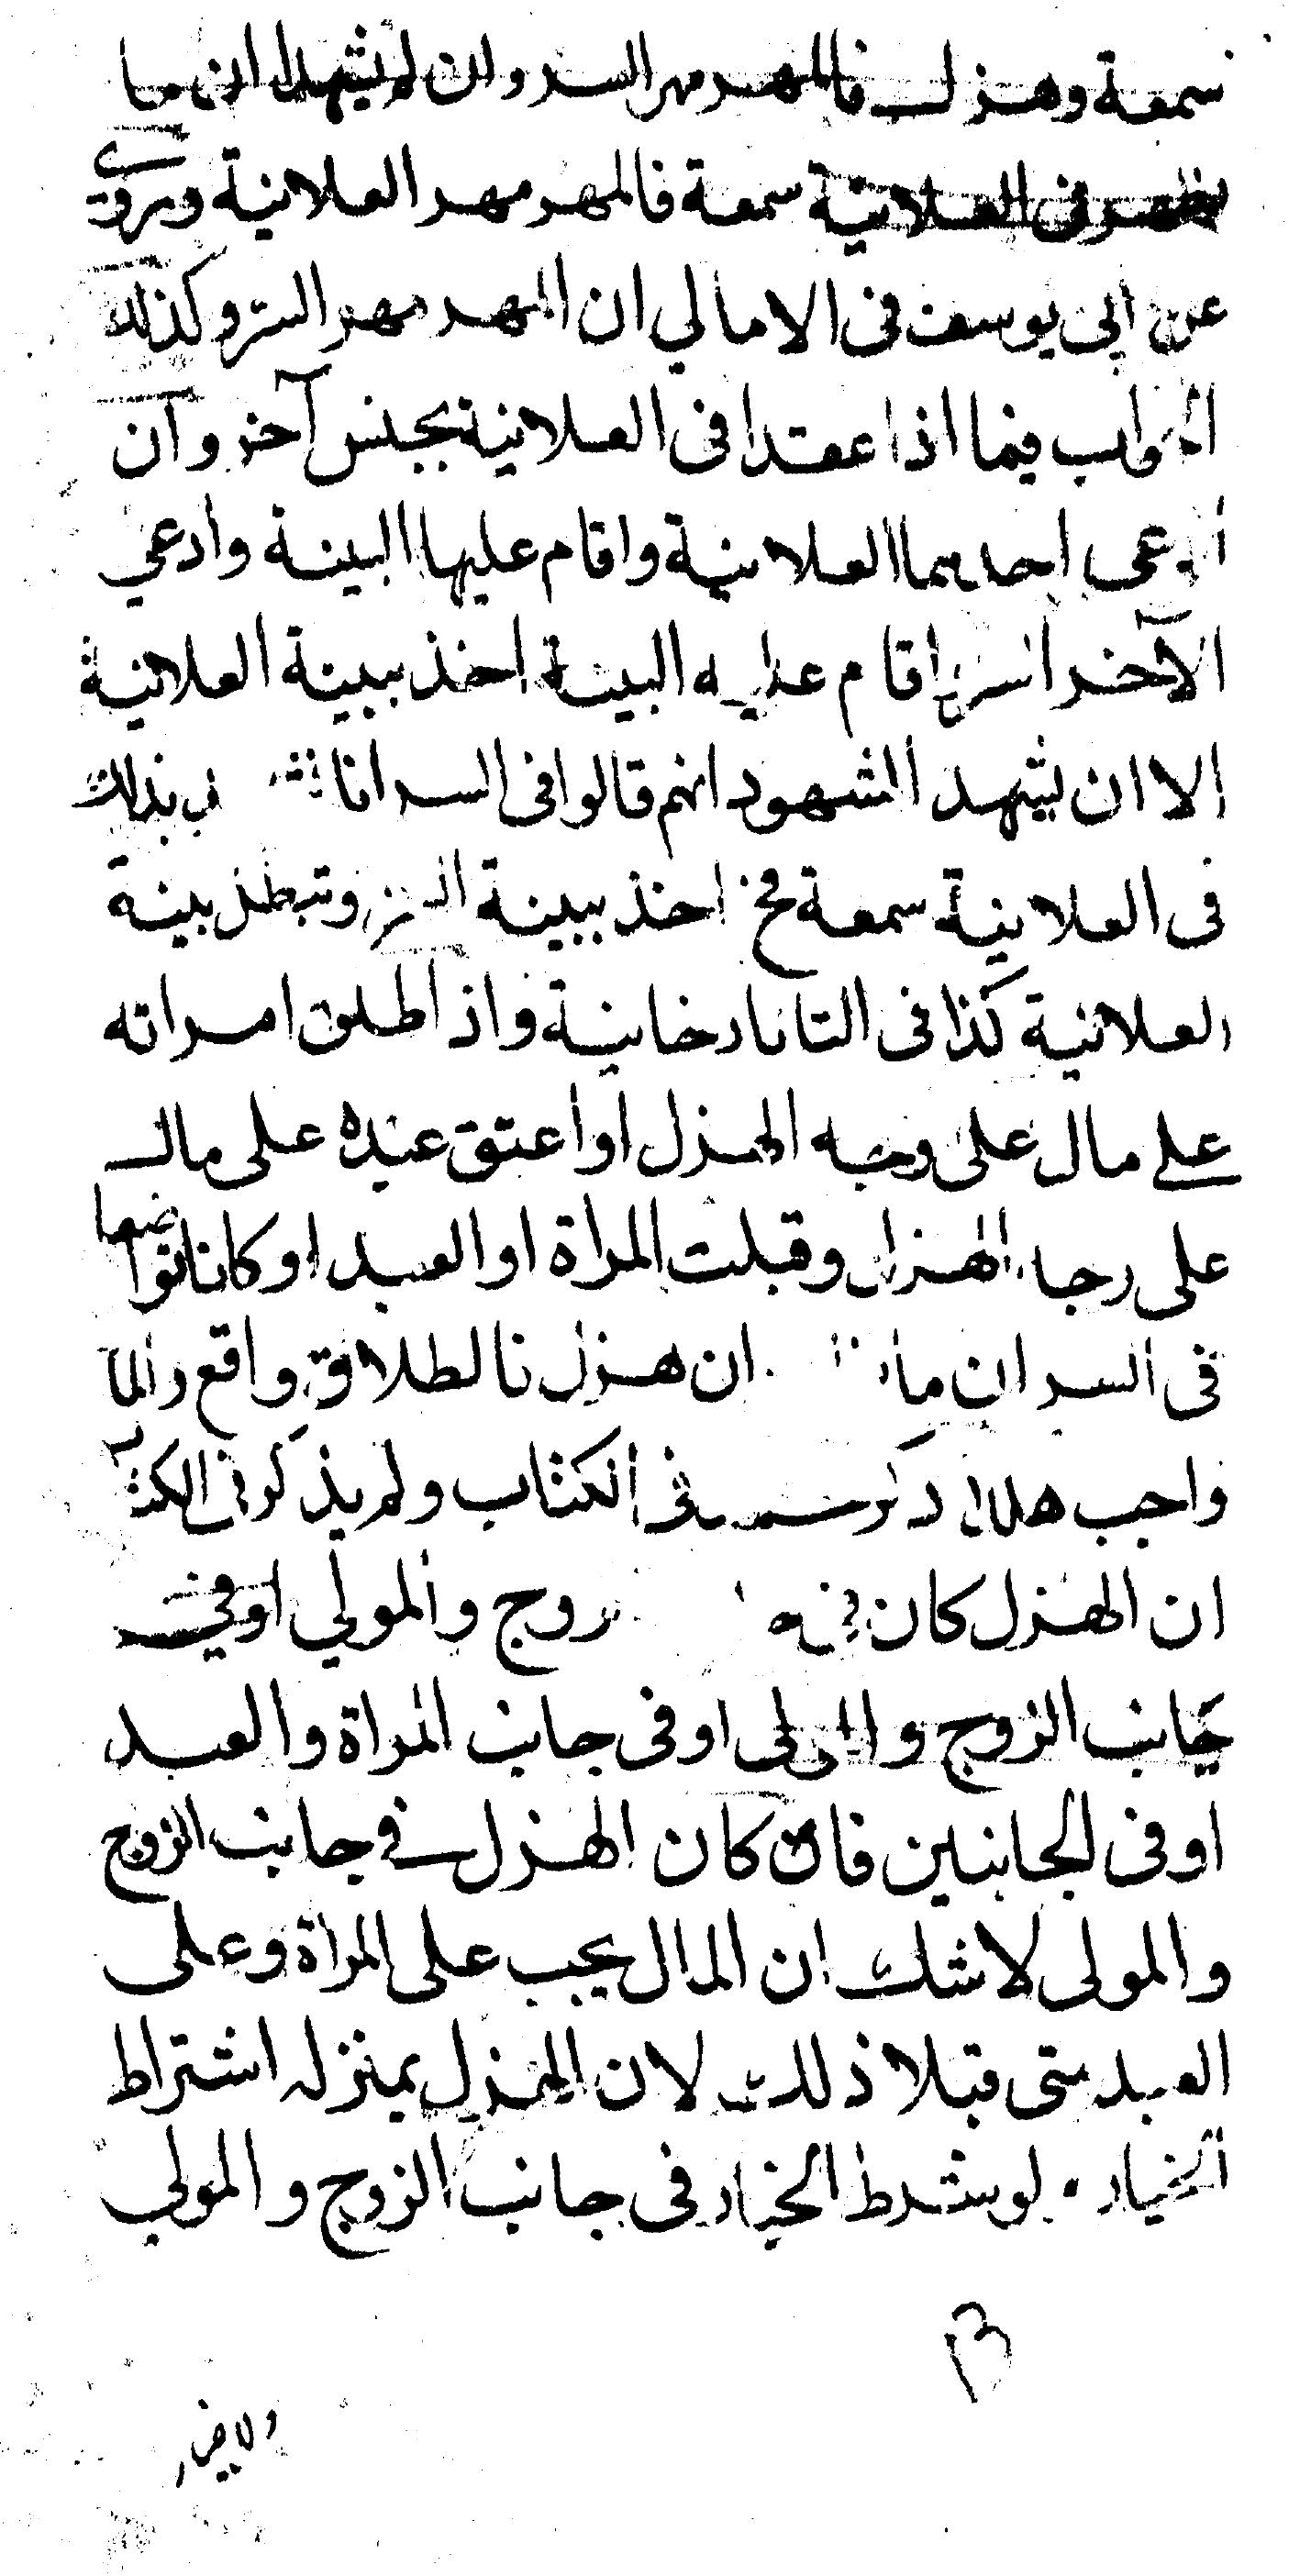 سمعة وهزل فالمهر مهر السر وان لم يشهدا ان ما
يظهر فى العلانية سمعة فالمهر مهر العلانية ويروي
عن ابى يوسف فى الامالي ان المهر مهر السر وكذلك
الجواب فيما اذا عقدا فى العلانية بجنس آخر وان
ادعى احدهما العلانية واقام عليها البينة وادعي
الآخر السر واقام عليه البينة اخذ ببينة العلانية
الا ان يشهد الشهود انهم قالوا فى السر انا بذلك
فى العلانية سمعة فح اخذ ببينة السر وتبطل بينة
العلانية كذا فى التاتارخانية واذا طلق امراته
على مال على وجه الهزل او اعتق عبده على مال
على وجه الهزل وقبلت المراة او العبد او كانا تواضعا
فى السر ان ان هزل فالطلاق واقع والمال
واجب هكذا ذكر فى الكتاب ولم يذكر فى الكتاب
ان الهزل كان زوج والمولي او في
جانب الزوج والمولى او فى جانب المراة والعبد
او فى الجانبين فان كان الهزل في جانب الزوج
والمولى لا شك ان المال يجب على المراة وعلى
العبد متى قبلا ذلك لان الهزل بمنزله اشتراط
الخيار ولو شرط الخيار فى جانب الزوج والمولي